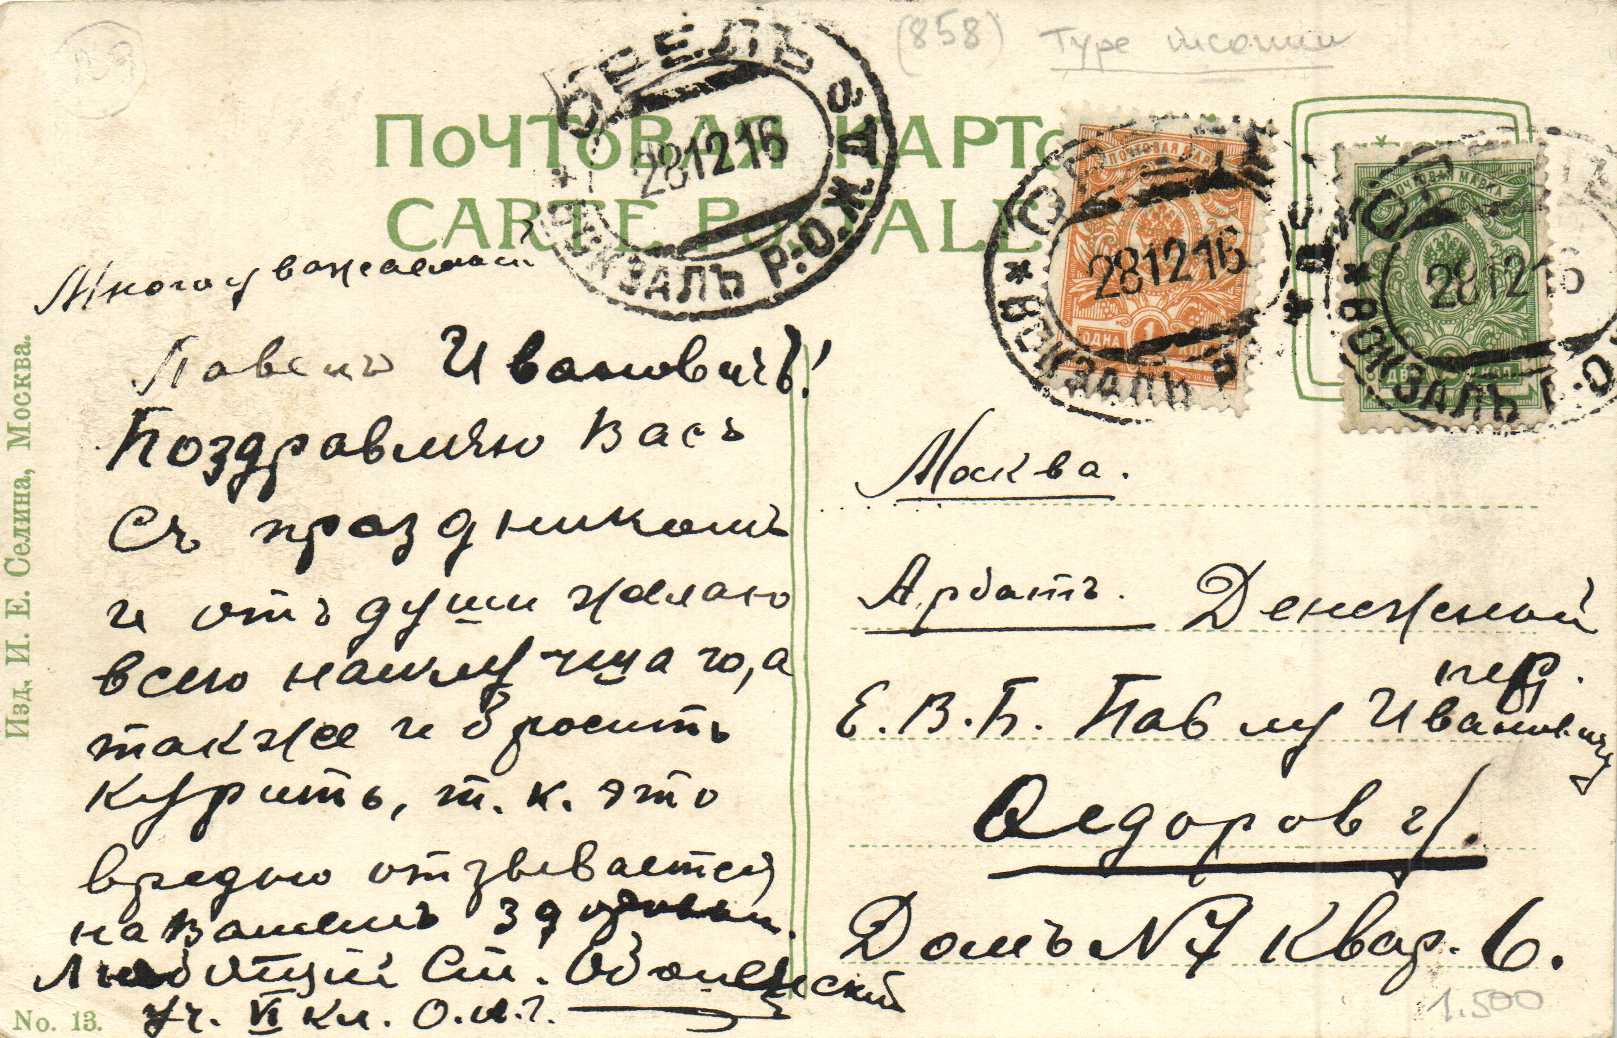 (858) Type
ПОЧТОВАЯ КАРТО
CARTE PO ALE
ОРЕЛЪ
28 12 16
ВОКЗАЛЪ Р.-О.Ж.Д.
ПОЧТОВАЯ МАРКА
28 12 16
ОДНА 1 КОП.
ВОКЗАЛЪ Р
ПОЧТОВАЯ МАРКА
28 12 16
ДВѢ 2 КОП.
ВОКЗАЛЪ Р.-О
Многоуважаемый
Павелъ Ивановичъ!
Поздравляю Васъ
съ праздникомъ
и отъ души желаю
всего наилучшаго, а
также и бросить
курить, т. к. это
вредно отзывается
на Вашемъ здоровьи.
Любящий Ст. Оболенский
Уч. VI кл. О.И.Г.
Москва.
Арбатъ. Денежный
пер.
Е. В. Б. Павлу Ивановичу
Ѳедорову.
Домъ N 7 Квар. 6.
1.500
Изд. И. Е. Селина, Москва.
No. 13.